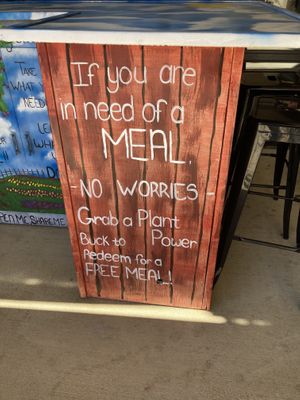 If you are
in need of a
MEAL,
-NO WORRIES-
Grab a Plant
Buck to Power
Redeem for a
FREE MEAL!
TAKE
WHAT
NEED
LE
WHA